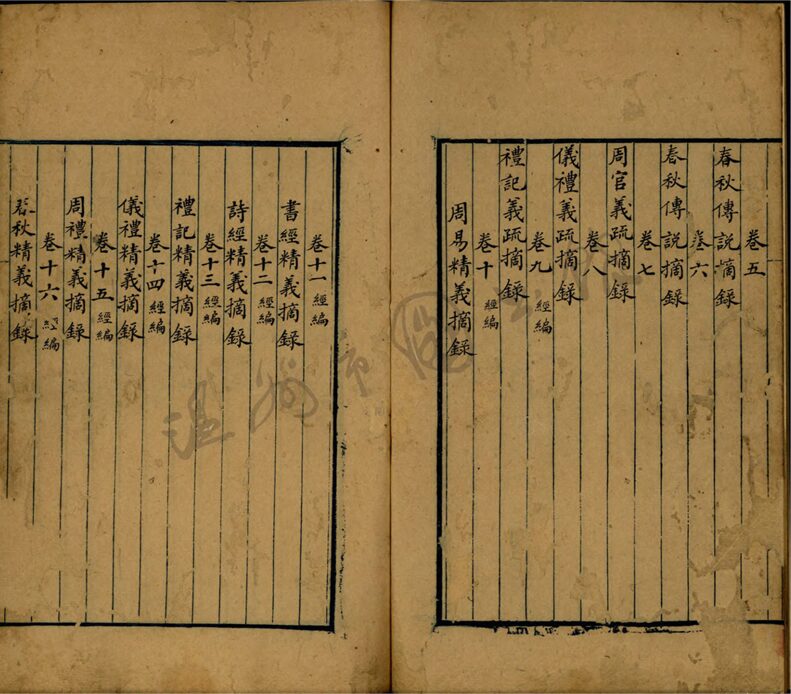 卷五
春秋傳說摘錄
卷六
春秋傳說摘錄
卷七
周官義疏摘錄
卷八
儀禮義疏摘錄
卷九 經編
禮記義疏摘錄
卷十 經編
周易精義摘錄
卷十一 經編
書經精義摘錄
卷十二 經編
詩經精義摘錄
卷十三 經編
禮記精義摘錄
卷十四 經編
儀禮精義摘錄
卷十五 經編
周禮精義摘錄
卷十六 經編
春秋精義摘錄